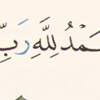 حَمْدُ لِلَّهِ رَبِّ